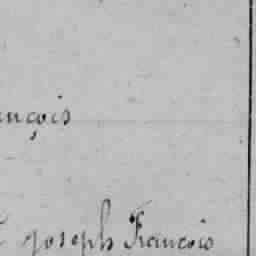 ançois
joseph Francois